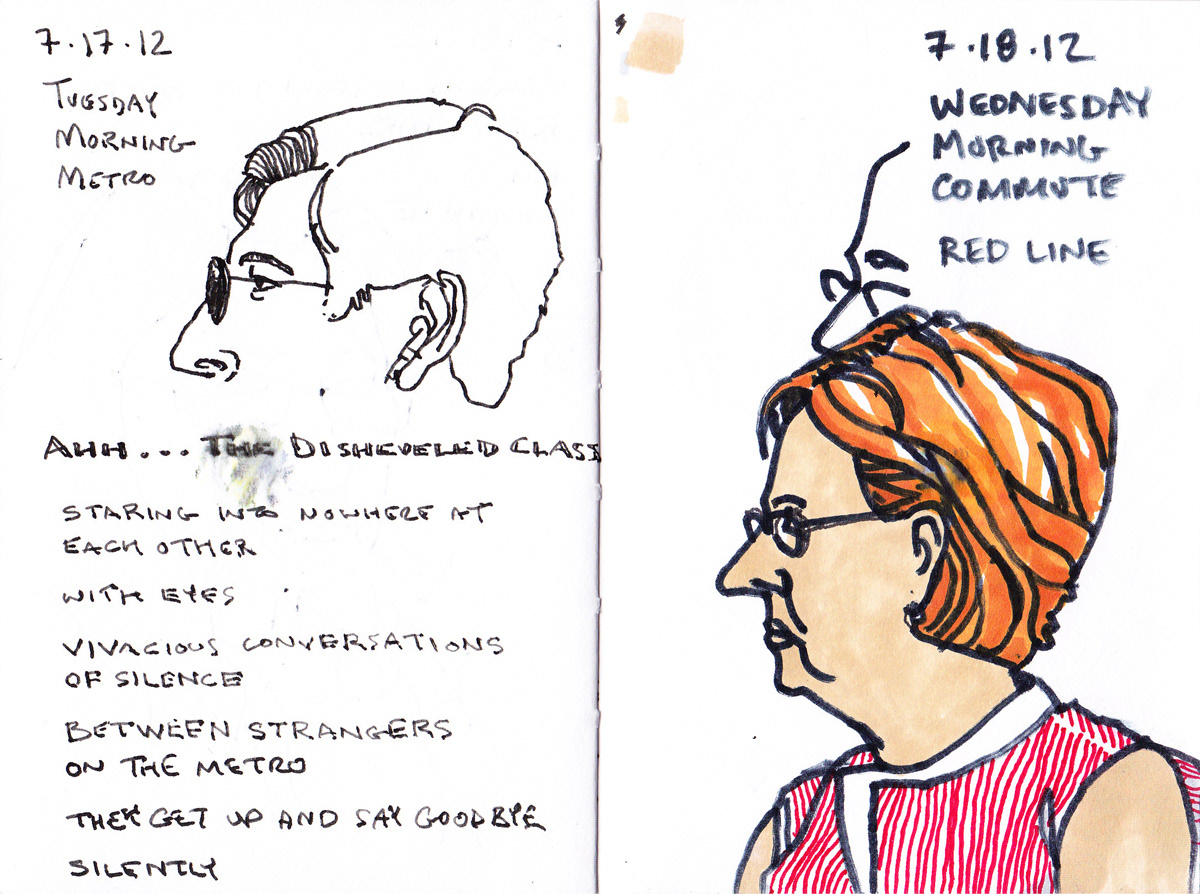 7.17.12
TUESDAY
MORNING
METRO
AHH... THE DISHEVELED CLASS
STARING INTO NOWHERE AT
EACH OTHER
WITH EYES
VIVACIOUS CONVERSATIONS
OF SILENCE
BETWEEN STRANGERS
ON THE METRO
THEY GET UP AND SAY GOODBYE
SILENTLY
7.18.12
WEDNESDAY
MORNING
COMMUTE
RED LINE